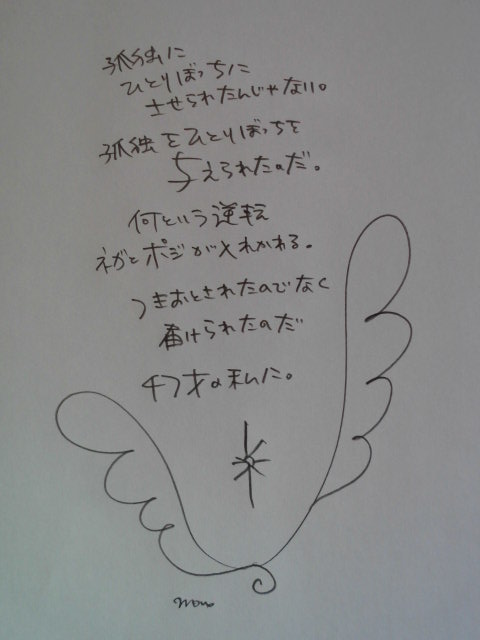 孤独に
ひとりぼっちに
させられたんじゃない。
孤独をひとりぼっちを
与えられたのだ。
何という逆転
ネガとポジが入れかわる。
つきおとされたのでなく
届けられたのだ
47才の私に。
momo